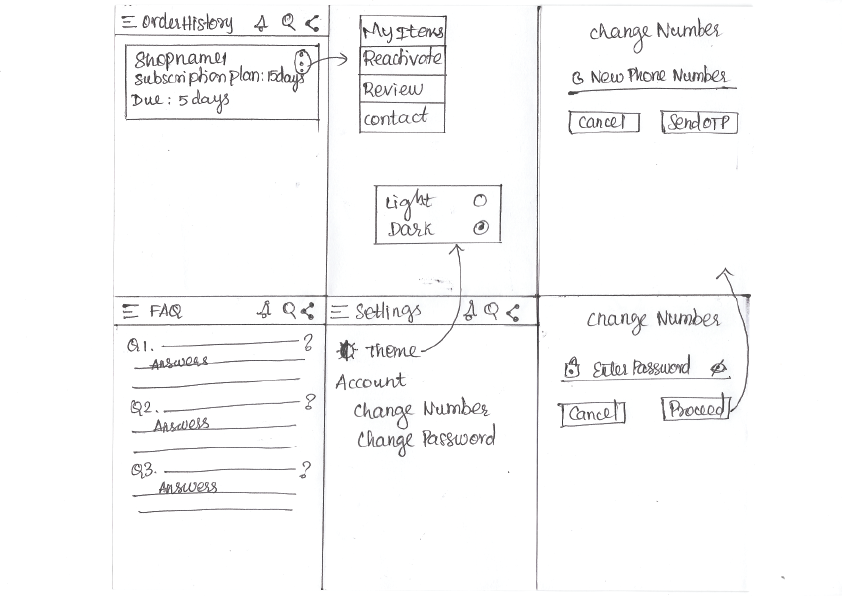 OrderHistory
Shopname1
Subscription plan: 15days
Due: 5 days
My Items
Reactivate
Review
contact
Light
Dark
Change Number
New Phone Number
Cancel
Send OTP
FAQ
Q1. ?
Answers
Q2. ?
Answers
Q3. ?
Answers
Settings
Theme
Account
Change Number
Change Password
Change Number
Enter Password
Cancel
Proceed